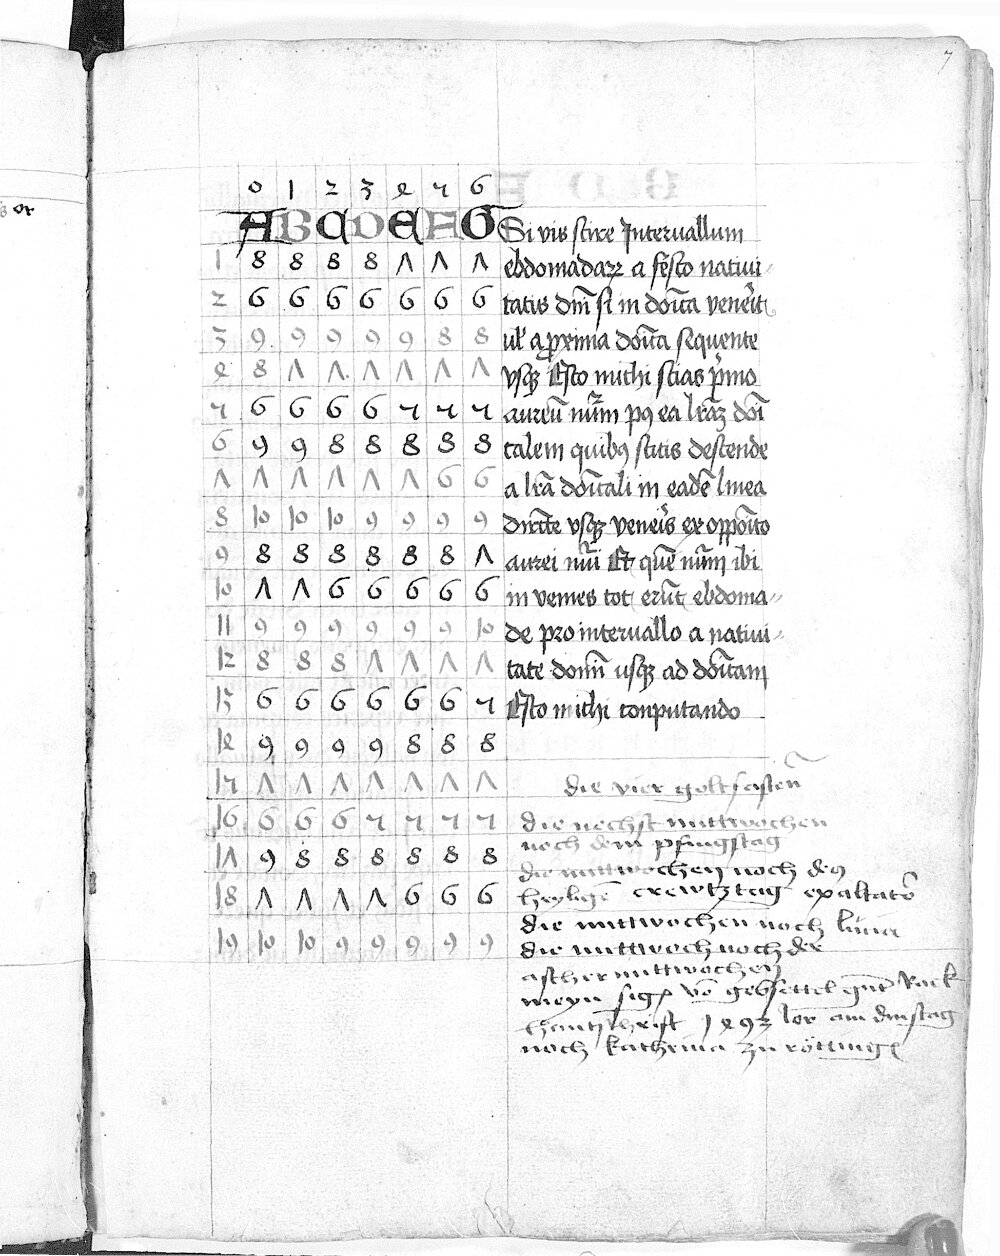 7
0 1 2 3 4 5 6
A B C D E F G
1 8 8 8 8 7 7 7
2 6 6 6 6 6 6 6
3 9 9 9 9 9 8 8
4 8 7 7 7 7 7 7
5 6 6 6 6 5 5 5
6 9 9 8 8 8 8 8
7 7 7 7 7 7 6 6
8 10 10 10 9 9 9 9
9 8 8 8 8 8 8 7
10 7 7 6 6 6 6 6
11 9 9 9 9 9 9 10
12 8 8 8 7 7 7 7
13 6 6 6 6 6 6 5
14 9 9 9 9 8 8 8
15 7 7 7 7 7 7 7
16 6 6 6 5 5 5 5
17 9 8 8 8 8 8 8
18 7 7 7 7 6 6 6
19 10 10 9 9 9 9 9
Si vis scire Intervallum
ebdomadarꝝ a festo nativi-
tatis dn̄i si in dōica venerit
ul' a proxima dōica sequente
vsqꝫ Esto michi scias pͥmo
aureū nūm pꝰ ea lrāꝫ dōi
calem quibꝰ scitis descende
a lrā dōicali in eadē linea
directe vsqꝫ veneris ex opposito
aurei nūi Et quē nūm ibi
invenies tot erūt ebdoma-
de pro intervallo a nativi-
tate domī usqꝫ ad dōicam
Esto michi conputando
die vier goltfastē
die nechst mittwochen
noch dem pfingstag
die mittwochen noch des
heyligē crewtztag exaltatō
die mittwochen noch lucia
die mittwoch noch der
aschermittwochen
meyn sig vō gebsettel
hantschrift 1493 Jor am dinstag
noch kathrina zu röttinge